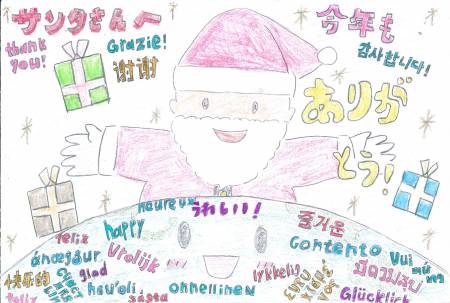 サンタさんへ
今年も
thank you!
Grazie!
谢谢
감사합니다!
ありが
とう!
heureux
うれしい!
felix
happy
즐거운
ánægður
Vrolijk
Contento
Vui
快乐的
glad
lykkelig
hau'oli
onnellinen
sásta
Glücklich
feliz